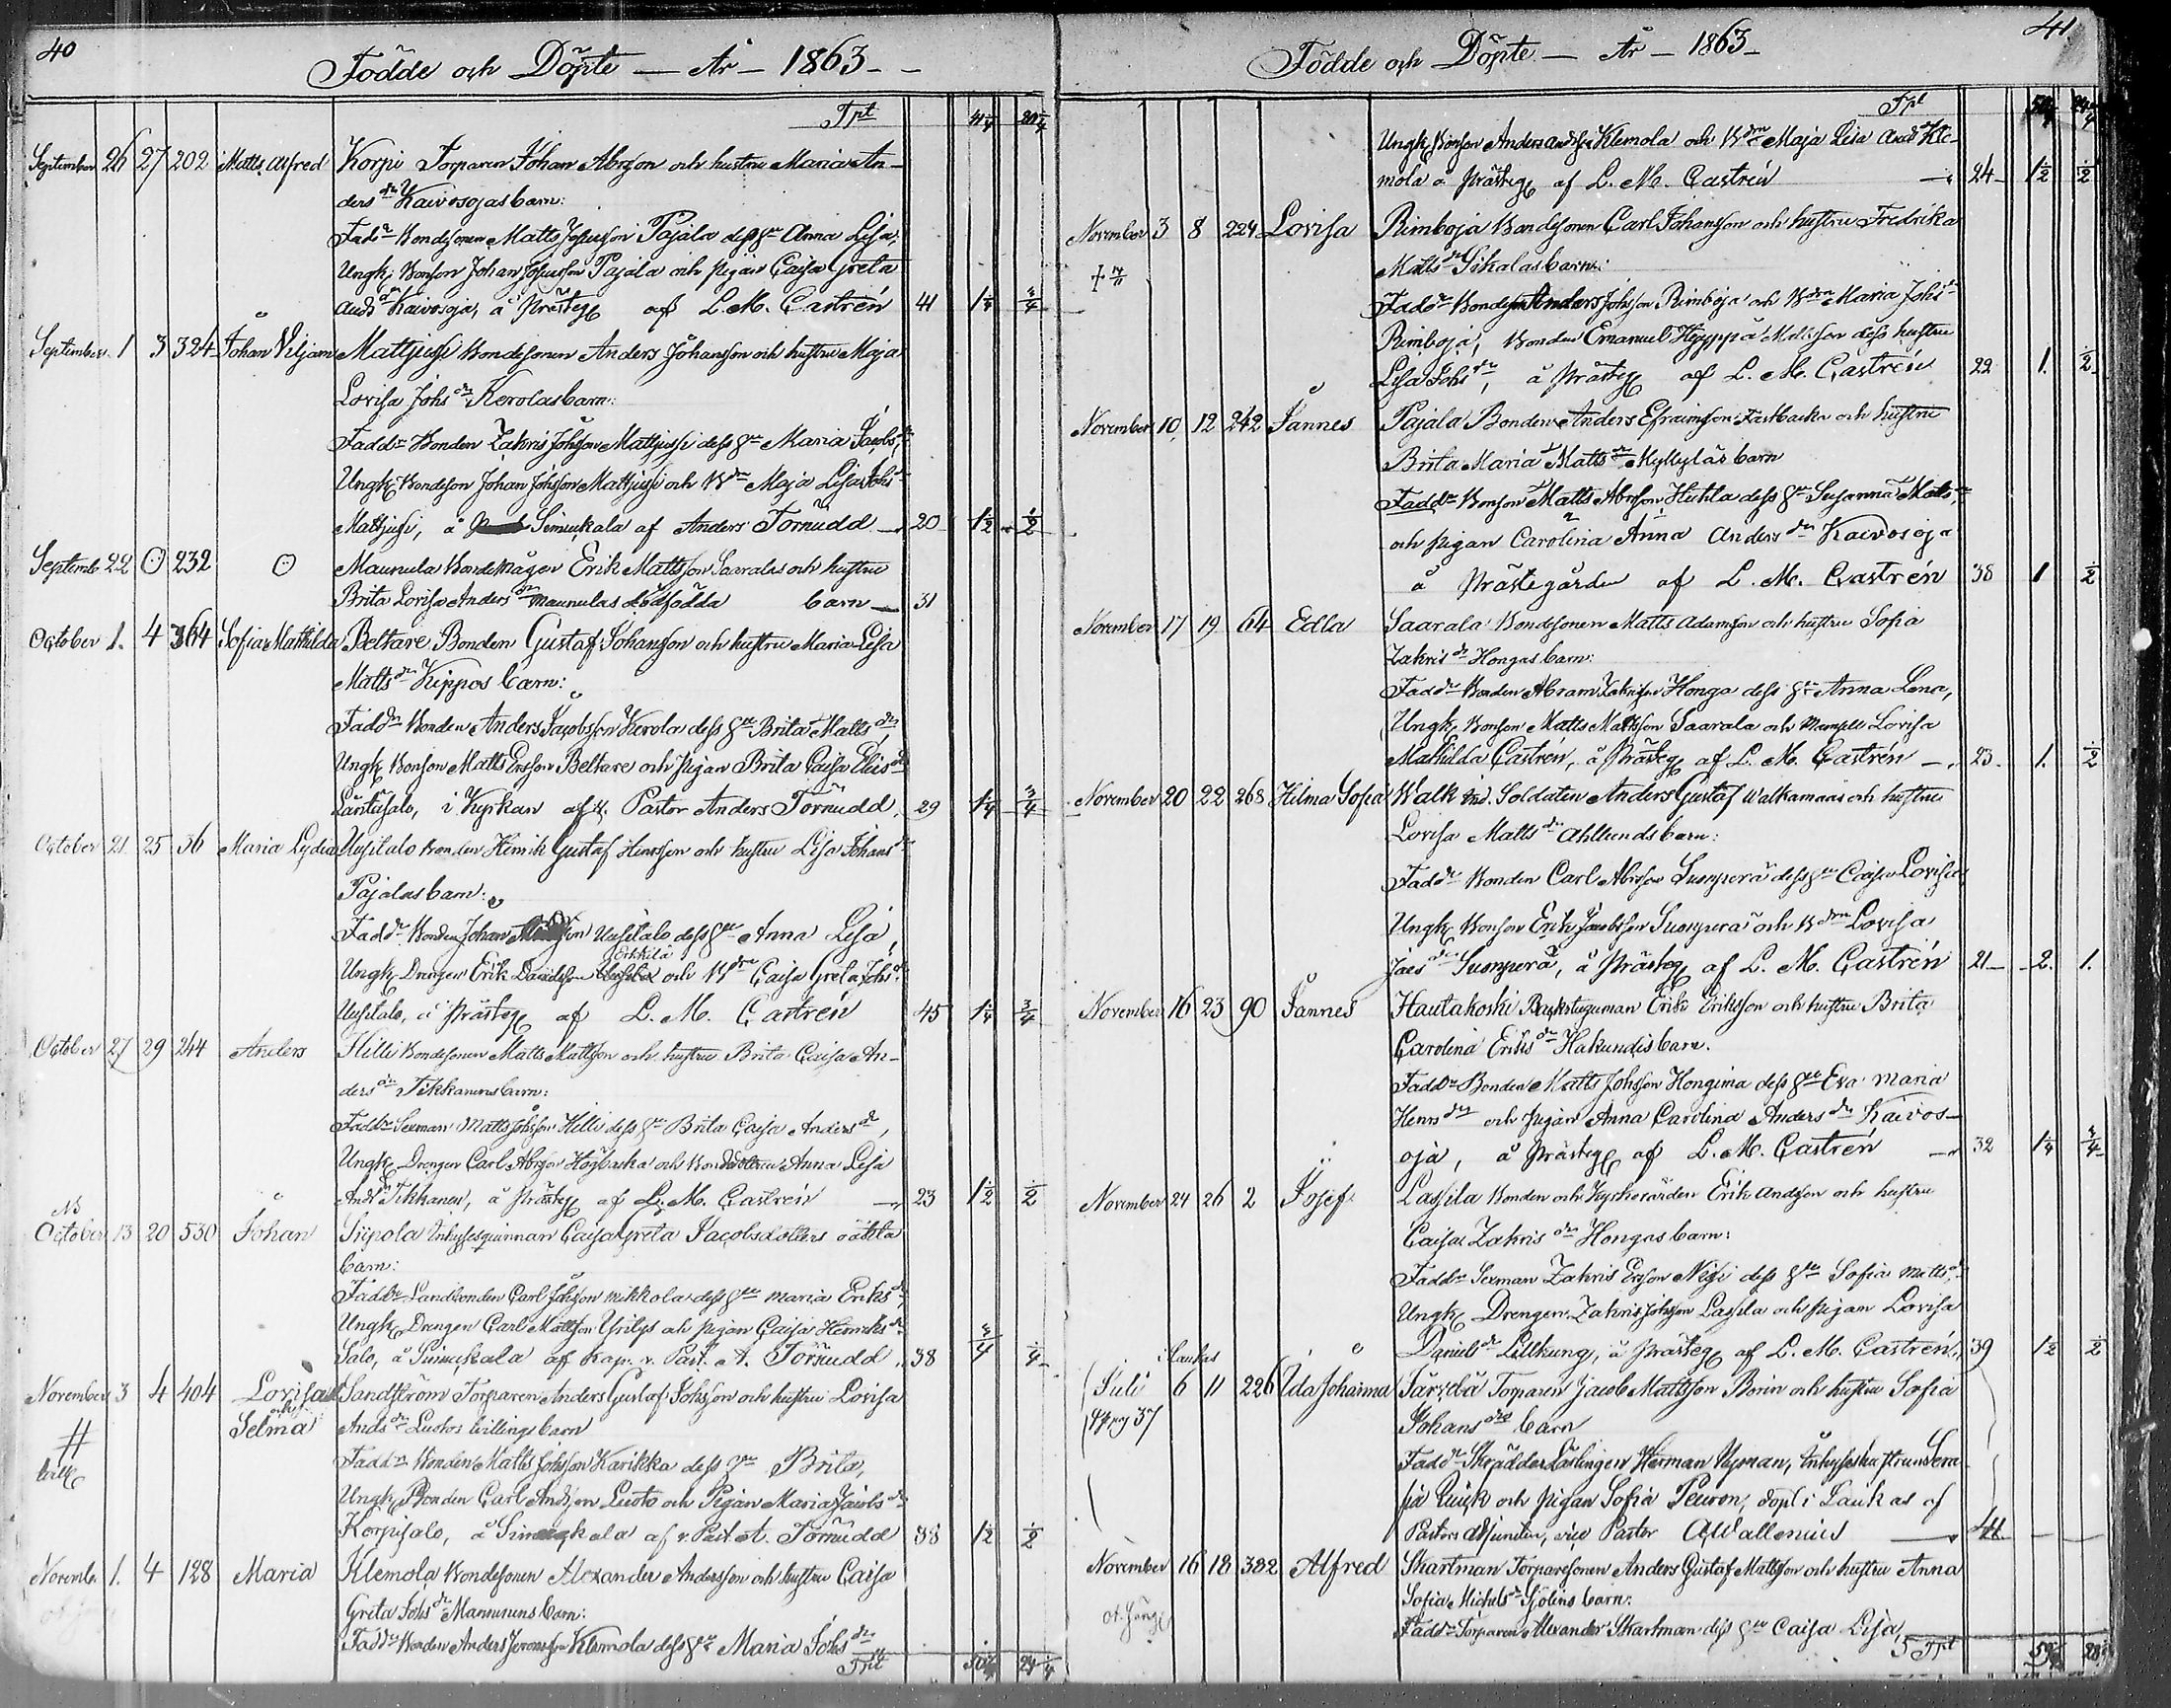 40
Födde och Döpte — År — 1863 —
Tpt 41 1/4
September 26 27 202 Matts Alfred Korpi Torparen Johan Abrsson och hustru Maria An-
ders dr Kaivosojas barn:
Fadd: Bondesonen Matts Pajala dess hu Anna Lisa,
Ungk: Bonson Johan Pajala och pigan Caisa Greta
Ands dr Kaivosoja, å Prästeg af L. M. Castrén 41 1 1/4 3/4
September 1 3 324 Johan Viljam Mattjussi Bondesonen Anders Johansson och hustru Maja
Lovisa Johs dr Kerolas barn:
Fadd: Bonden Zakris Johsson Mattjussi dess hu Maria Jacobs dr,
Ungk: Bondeson Johan Johsson Mattjussi och Bdrn Maja Lisa Johs dr
Mattjussi, å Simukala af Anders Törnudd — 20 1 1/2 1/2
Septemb 22 ⊙ 232 ⊙ Maunula Bondemågen Erik Mattsson Saarala och hustru
Brita Lovisa Anders dr Maunulas dödfödda barn — 31
October 1. 4 364 Sofia Mathilda Beltare Bonden Gustaf Johansson och hustru Maria Lisa
Matts dr Kippos barn:
Fadd: Bonden Anders Jacobsson Kerola dess hu Brita Matts dr,
Ungk Bonson Matts Ersson Beltare och pigan Brita Caisa Elias dr
i Kyrkan af v. Pastor Anders Törnudd. 29 1 1/4 3/4
October 21 25 36 Maria Lydia Uusitalo Bonden Henrik Gustaf Henrsson och hustru Lisa Johans dr
Pajalas barn:
Fadd: Bonden Johan Uusitalo dess hu Anna Lisa,
Erkkilä
Ungk Drengen Erik Davidsson och Bdrn Caisa Greta Johs dr
Uusitalo, å Prästeg af L. M. Castrén 45 1 1/4 3/4
October 27 29 244 Anders Hilli Bondesonen Matts Mattsson och hustru Brita Caisa An-
ders dr Tikkanens barn:
Fadd: Sexman Matts Johsson Hilli dess hu Brita Caisa Anders dr,
Ungk Drengen Carl Abrsson Högbacka och Bonddottren Anna Lisa
Ands dr Tikkanen, å Prästeg af L. M. Castrén — 23 1 1/2 1/2
NB
October 13 20 530 Johan Siipola Inhysesqvinnan Caisa Greta Jacobsdotters oäkta
barn:
Fadd: Landbonden Carl Johsson Mikkola dess hu Maria Eriks dr,
Ungk Drengen Carl Mattsson och pigan Caisa Henriks dr
Salo, å Simukala af Kap. v. Past. A. Törnudd. 38 3/4 1/4
November 3 4 404 Lovisa Sandström Torparen Anders Gustaf Johsson och hustru Lovisa
och
Selma Ands dr Luotos tvillings barn
# Fadd: Bonden Matts Johsson Karikka dess hu Brita,
Ungk Bonden Carl Andsson Luoto och Pigan Maria Jacobs dr
Korpisalo, å Simukala af v. Past. A. Törnudd 38 1 1/2 1/2
Novembr 1. 4 128 Maria Klemola Bondesonen Alexander Andersson och hustru Caisa
Greta Johs dr Mannunens barn:
Fadd: Bonden Anders Klemola dess hu Maria Johs dr
Tpt
41
Födde och Döpte — År — 1863 —
Tpt
Ungk Bonson Anders Andsson Klemola och Bdrn Maja Lisa Ands dr Kle-
mola å Prästeg af L. M. Castrén — 24 1 1/2 1/2
November 3 8 224 Lovisa Rimboja Bondesonen Carl Johansson och hustru Fredrika
Matts dr Sikalas barn:
Fadd: Bondeson Anders Johsson Rimboja och Bdrn Maria Johs dr
Rimboja, Bonden Emanuel Heyppä Mattsson dess hustru
Lisa Johs dr, å Prästeg af L. M. Castrén 22 1. 1/2
November 10 12 242 Jannes Pajala Bonden Anders Efraimsson Fastbacka och hustru
Brita Maria Matts dr Myllyläs barn
Fadd: Bonson Matts Abrsson Huhla dess hu Susanna Matts dr,
och pigan Carolina Anna Anders dr Kaivosoja
å Prästegården af L. M. Castrén 38 1 1/2
November 17 19 64 Edla Saarala Bondesonen Matts Adamsson och hustru Sofia
Zakris dr Hongas barn:
Fadd: Bonden Abram Zakrisson Honga dess hu Anna Lena,
Ungk Bonson Matts Mattsson Saarala och Mamsell Lovisa
Mathilda Castrén, å Prästeg af L. M. Castrén —. 23. 1. 1/2
November 20 22 268 Hilma Sofia Walk Ind. Soldaten Anders Gustaf Walkamaas och hustru
Lovisa Matts dr Ahllunds barn:
Fadd: Bonden Carl Abrsson Sumperä dess hu Caisa Lovisa,
Ungk Bonson Erik Jacobsson Sumperä och Bdrn Lovisa
Jacs dr Sumperä, å Prästeg af L. M. Castrén 21 — 2. 1.
November 16 23 90 Jannes Hautakoski Backstuguman Erik Eriksson och hustru Brita
Carolina Eriks dr Hakundis barn.
Fadd: Bonden Matts Johsson Hongima dess hu Eva Maria
Henrs dr och pigan Anna Carolina Anders dr Kaivos-
oja, å Prästeg af L. M. Castrén — 32 1 1/4 3/4
November 24 26 2 Josef Lassila Bonden och Kyrkovärden Erik Andsson och hustru
Caisa Zakris dr Hongas barn:
Fadd: Sexman Zakris Ersson Niri dess hu Sofia Matts dr,
Ungk Drengen Zakris Johsson Lassila och pigan Lovisa
Daniels dr Lillkung, å Prästeg af L. M. Castrén 39 1 1/2 1/2
Laukas
Juli 6 11 226 Ida Johanna Särvelä Torparen Jacob Mattsson Borin och hustru Sofia
Johans drs barn
Fadd: Skrädderlärlingen Herman Nyman, Inhyseshustrun Sera-
fia Quick och pigan Sofia Peuron, döpt i Laukas af
Pastors Adjuncten, vice Pastor A Wallenius — 44
November 16 18 382 Alfred Skartman Torparesonen Anders Gustaf Mattsson och hustru Anna
Sofia Michels dr Sjölins barn:
Fadd: Torparen Alexander Skartman dess hu Caisa Lisa,
Tpt